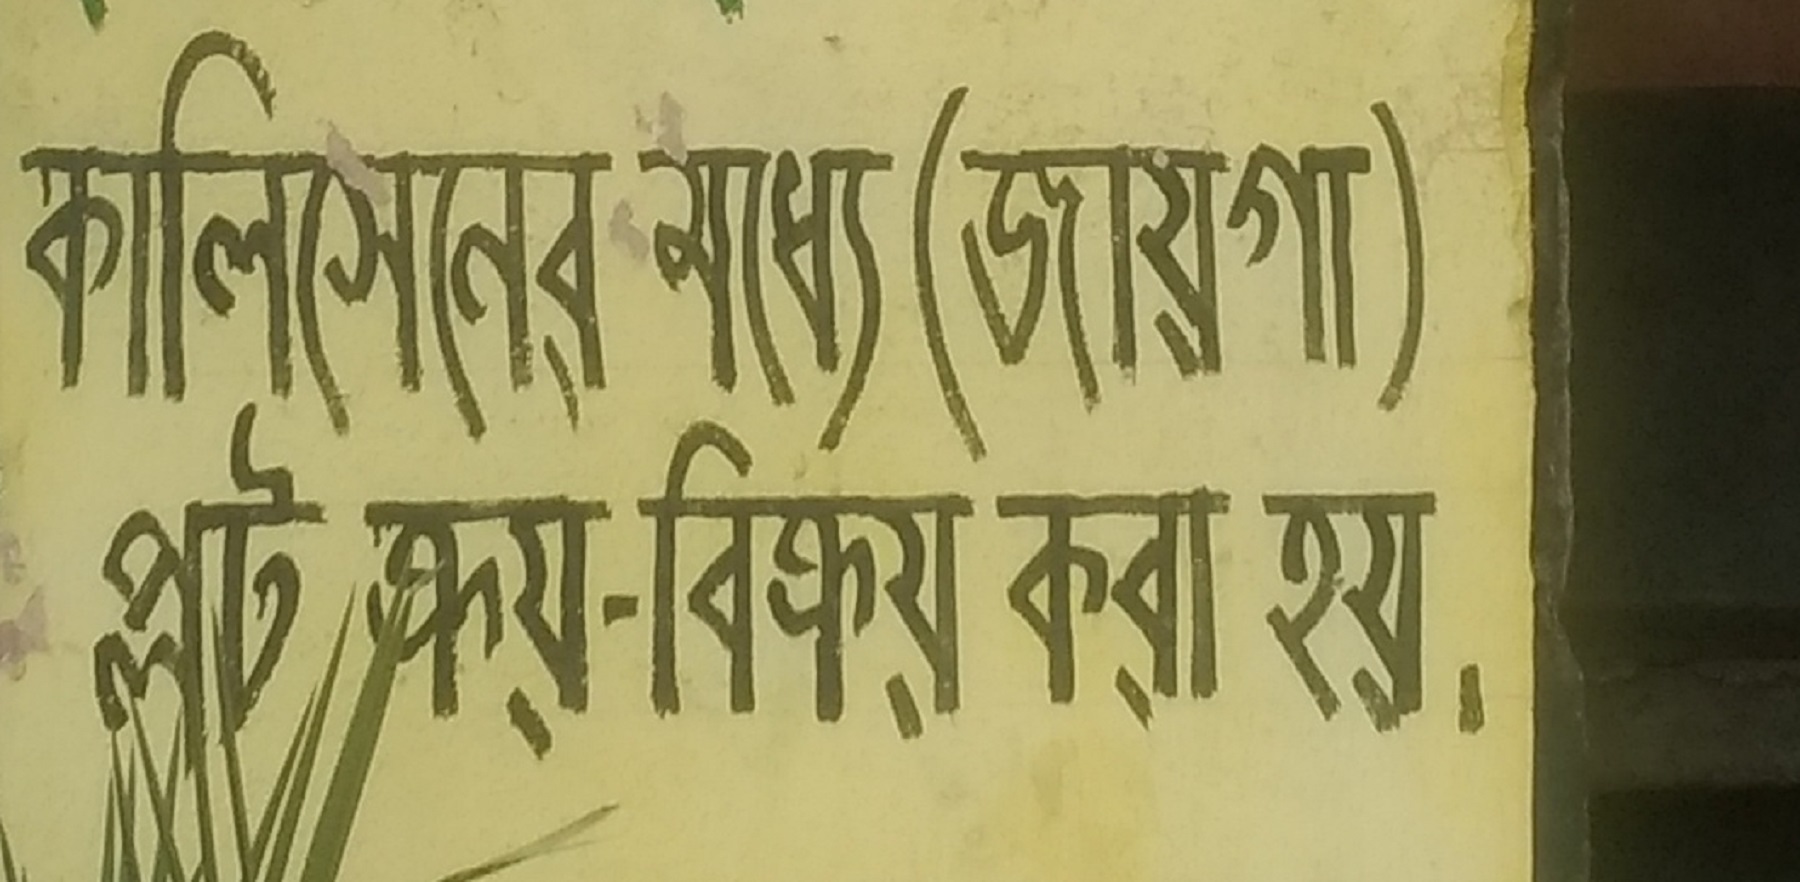 কালিসেনের মধ্যে (জায়গা)
প্লট ক্রয়-বিক্রয় করা হয়.